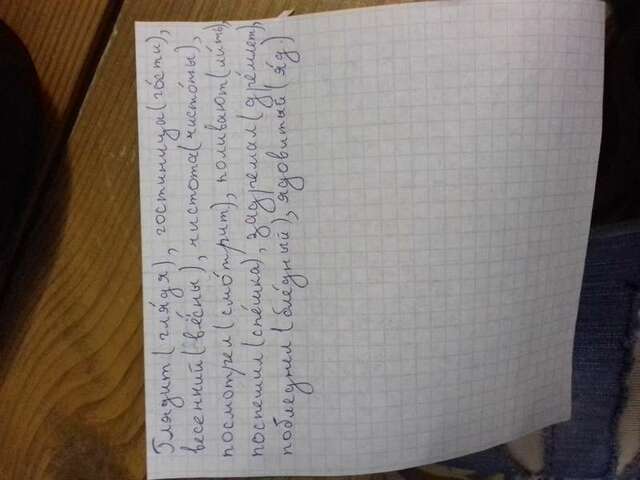 Глядит (гля́дя), гостиница (го́сти),
весенний (вёсны), чистота (чисто́ты),
посмотрел (смо́трит), поливают (ли́ть),
поспешил (спе́шка), задремал (дре́млет),
побледнел (бле́дный), ядовитый (я́д)